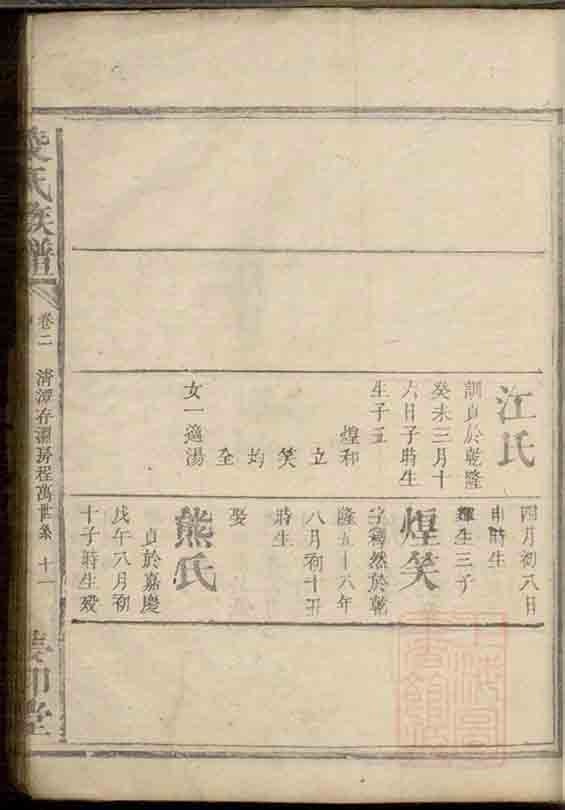 江氏
訓貞於乾隆
癸未三月十
六日子時生
生子五
煌和
立
笑
均
全
女一適湯
四月初八日
申時生
生三子
煌笑
字 然於乾
隆五十六年
八月初十
時生
娶
熊氏
貞於嘉慶
戊午八月初
十子時生歿
氏族譜
卷二
清潭存 房程萬世系 十一
堂